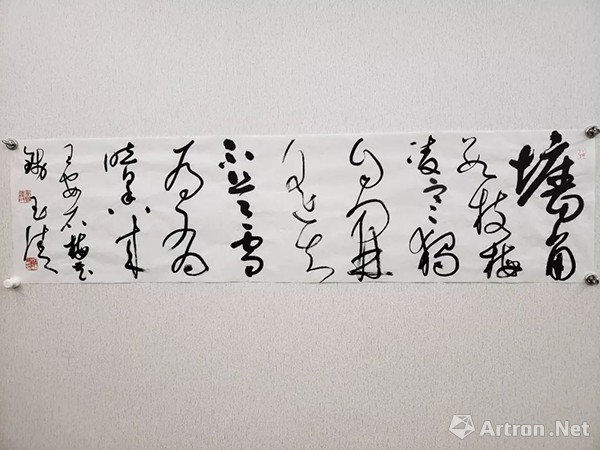 墙角
数枝梅
凌寒独
自開
遥知
不是雪
为有
暗香来
王安石梅花
Artron.Net